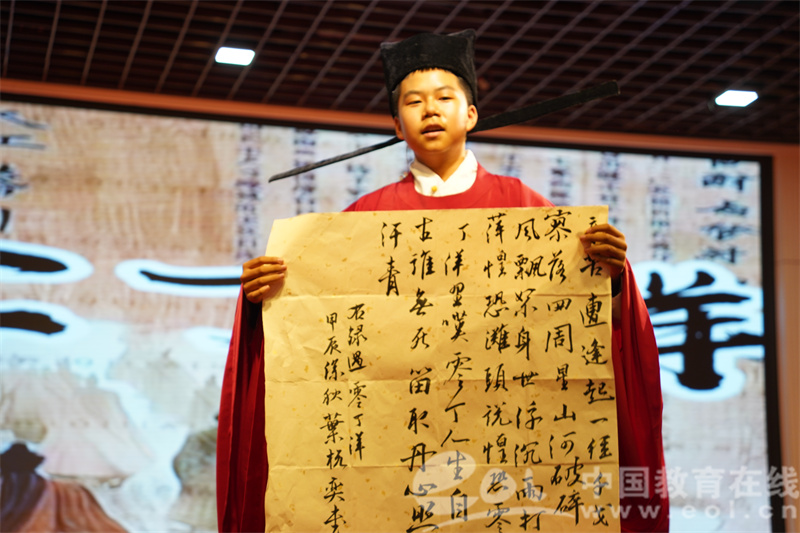 辛苦遭逢起一經干戈
寥落四周星山河破碎
風飄絮身世浮沉雨打
萍惶恐灘頭説惶恐零
丁洋里嘆零丁人生自
古誰無死留取丹心照
汗青
右録過零丁洋
甲辰深秋葉奕書
eol 中国教育在线
www.eol.cn